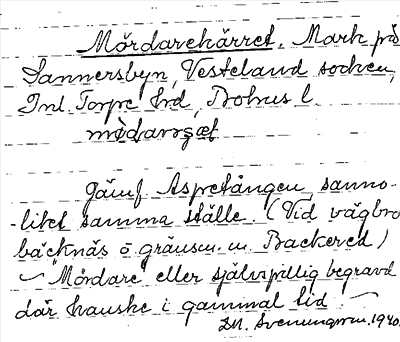 Mördarekärret. Mark på
Sannersbyn, Vesteland socken,
Inl. Torpe hrd, Bohus l.
mö̀darɛçæt
Jämf. Aspetången, sanno-
-likt samma ställe. (Vid vägbro
bäcknäs ö gränsen m Backered)
"Mördare" eller självspillig begravd
där kanske i gammal tid
Dr. Svenungsson. 1940.